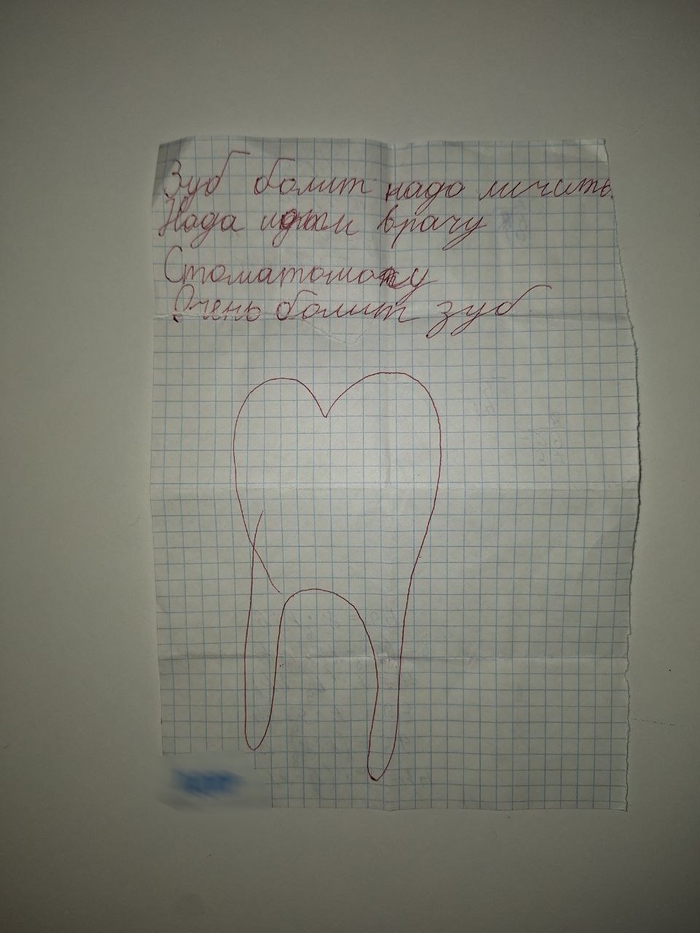 Зуб болит надо личить.
Нада идти врачу
Стоматомогу
Очень болит зуб